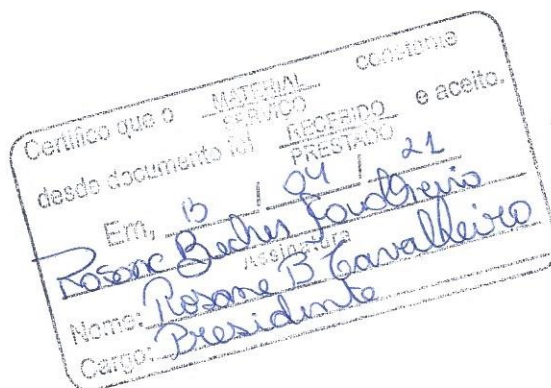 Certifico que o MATERIAL SERVIÇO constante
desde documento foi RECEBIDO PRESTADO e aceito.
Em, 13 / 04 / 21
Rosane
Assinatura
Nome: Rosane B Cavalheiro
Cargo: Presidente